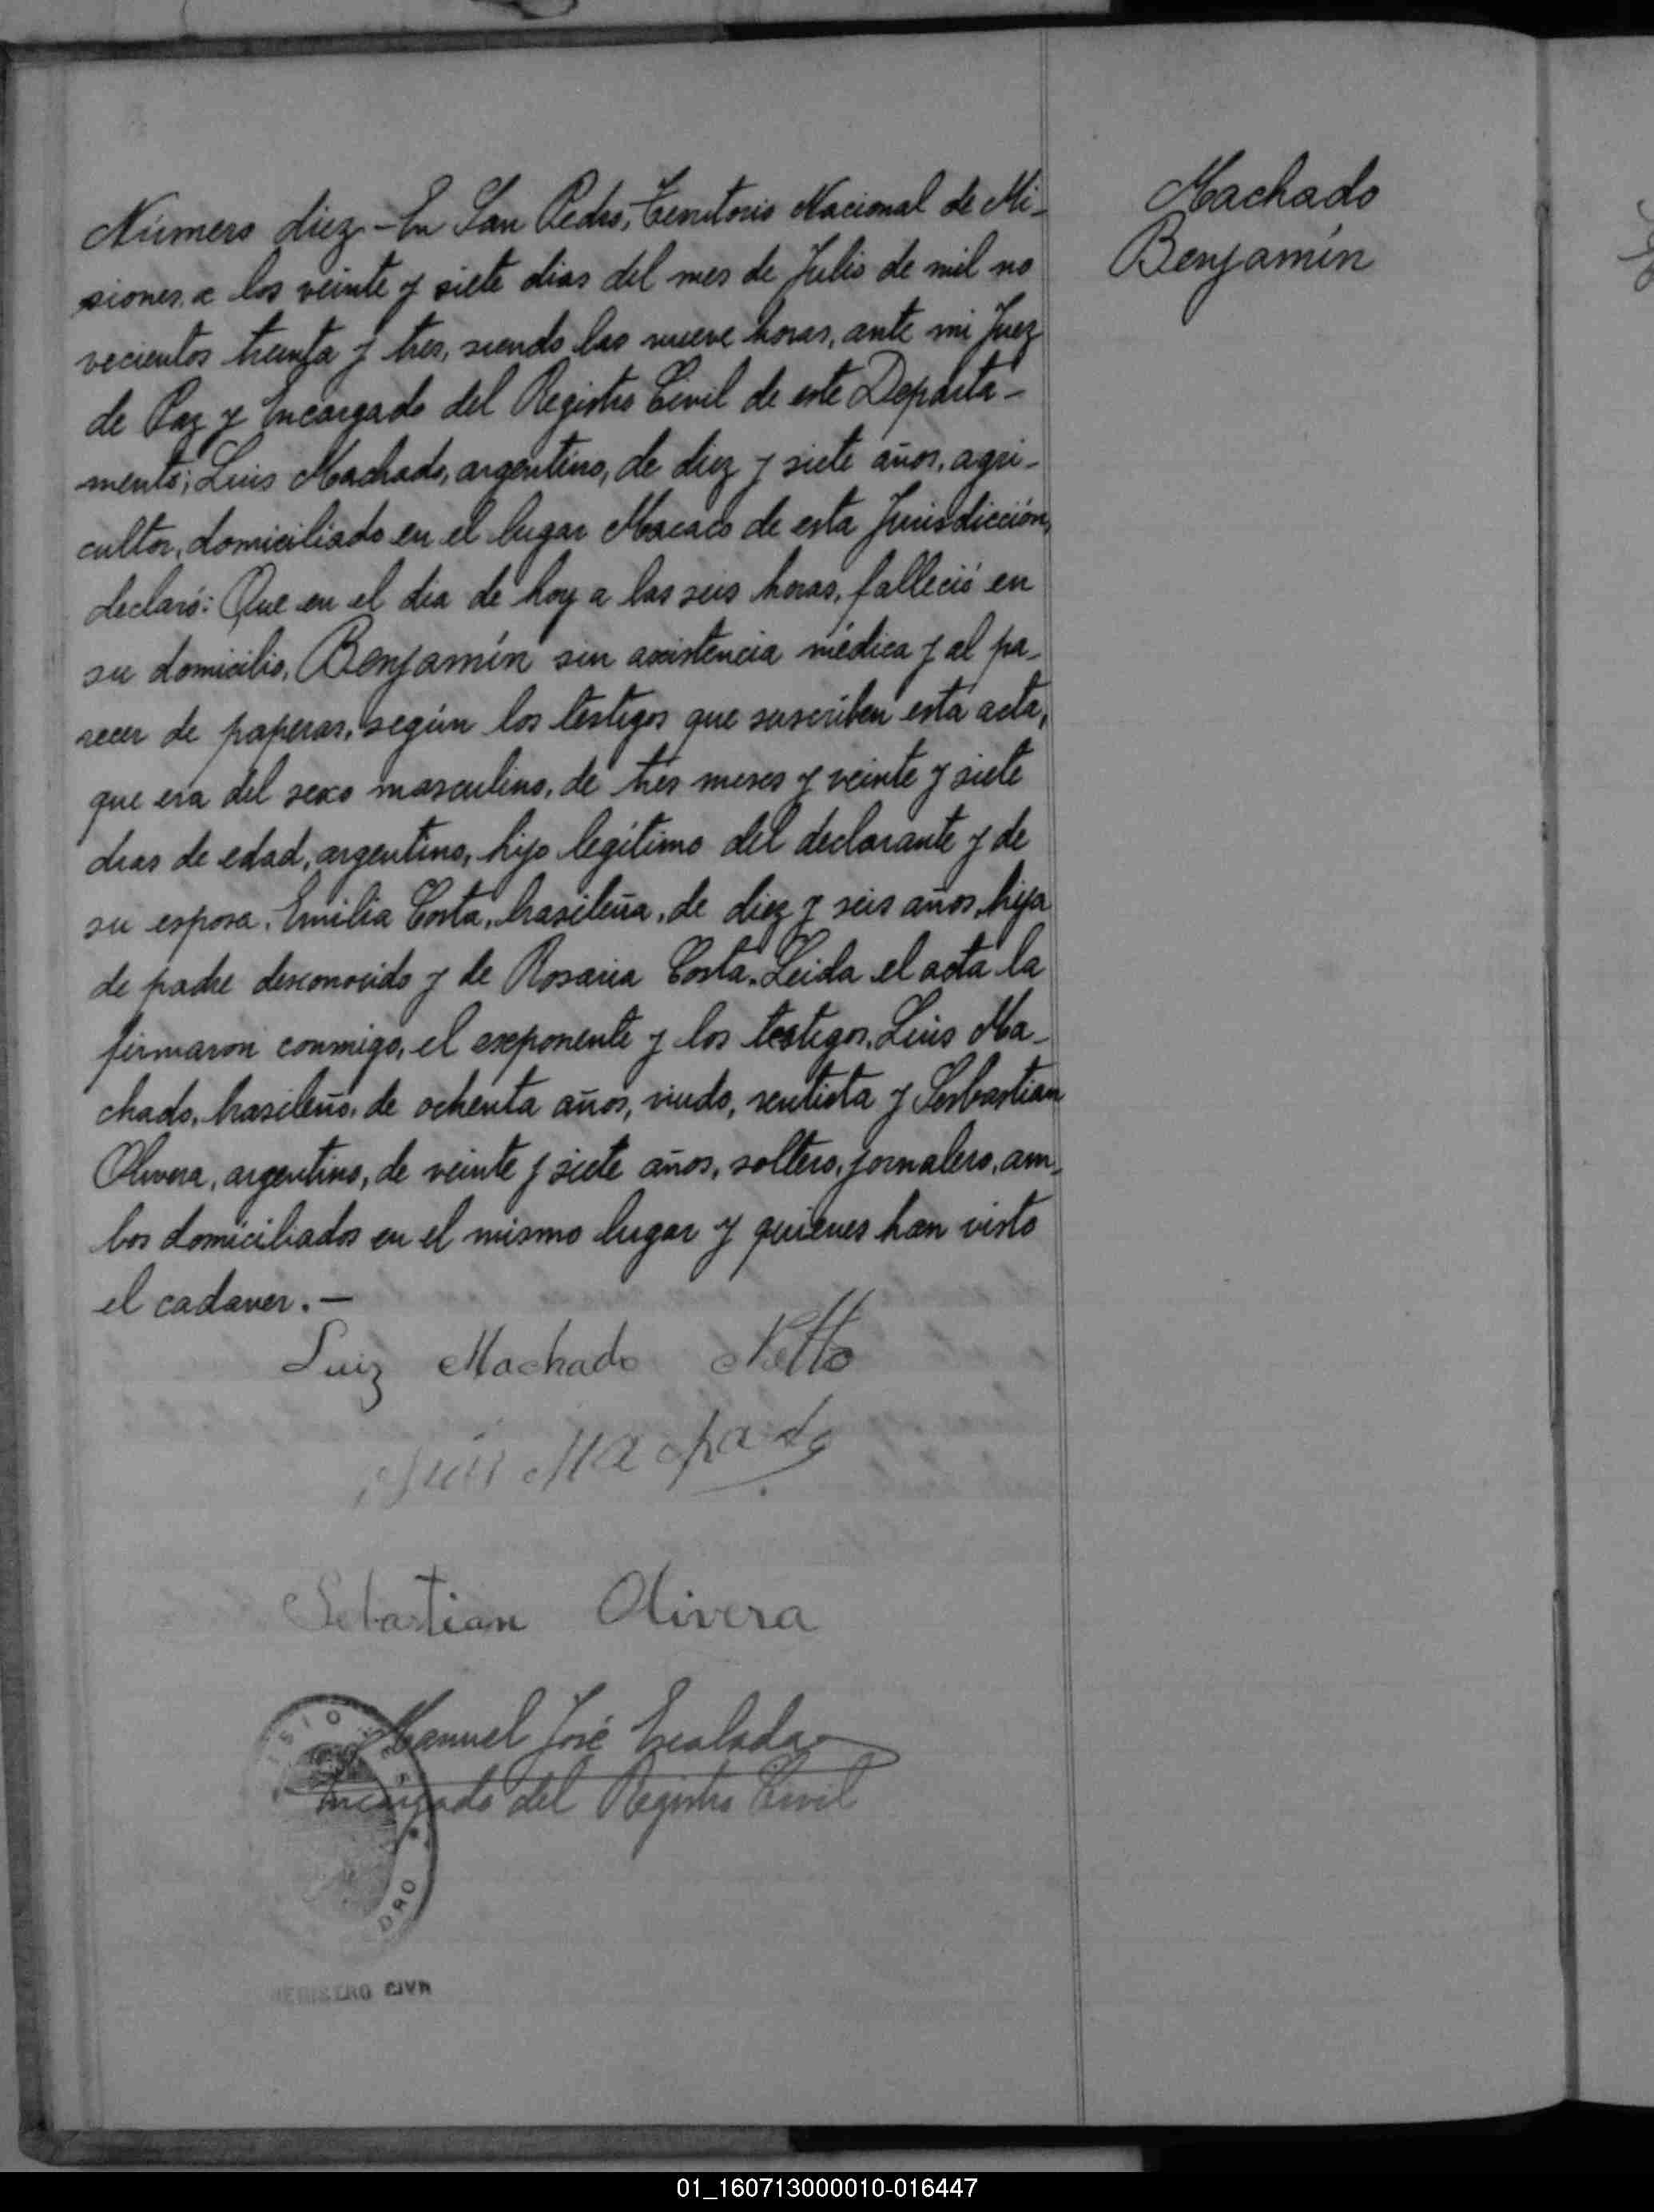 Número diez - En San Pedro, Territorio Nacional de Mi-
siones, a los veinte y siete dias del mes de Julio de mil no
vecientos treinta y tres, siendo las nueve horas, ante mi Juez
de Paz y Encargado del Registro Civil de este Departa-
mento; Luis Machado, argentino, de diez y siete años, agri-
cultor, domiciliado en el lugar Macaco de esta Jurisdicción,
declaró: Que en el dia de hoy a las seis horas, falleció en
su domicilio, Benjamín sin asistencia médica y al pa-
recer de paperas, según los testigos que suscriben esta acta,
que era del sexo masculino, de tres meses y veinte y siete
dias de edad, argentino, hijo legítimo del declarante y de
su esposa, Emilia Costa, brasileña, de diez y seis años, hija
de padre desconocido y de Rosaria Costa. Leida el acta la
firmaron conmigo, el exponente y los testigos, Luis Ma-
chado, brasileño, de ochenta años, viudo, rentista y Sebastian
Olivera, argentino, de veinte y siete años, soltero, jornalero, am-
bos domiciliados en el mismo lugar y quienes han visto
el cadaver. -
Luiz Machado Netto
Luis Machado
Sebastian Olivera
Manuel José
Encargado del Registro Civil
DRO
REGISTRO CIVIL
Machado
Benjamín
01_160713000010-016447